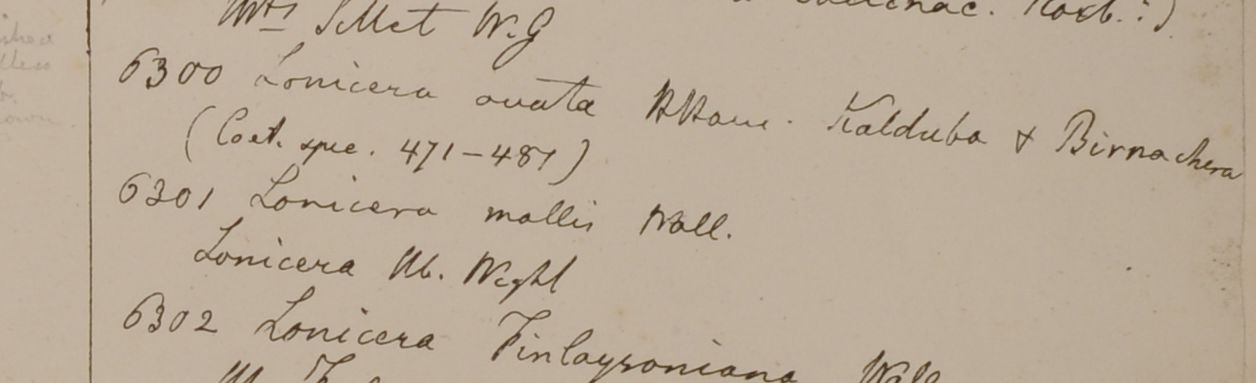 Mts Sillet W.G
6300 Lonicera ovata HHam. Kalduba & Birnachera
(Cat. spec. 471-487)
6301 Lonicera mollis Wall.
Lonicera Hb. Wight
6302 Lonicera Finlaysoniana Wall